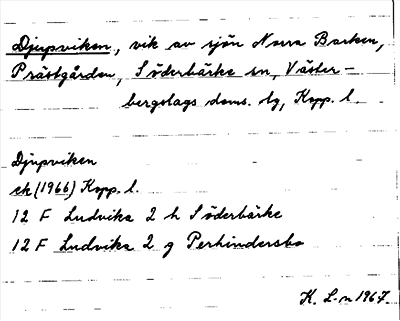 Djupviken, vik av sjön Norra Barken,
Prästgården, Söderbärke sn, Väster-
bergslags doms. lg, Kopp. l.
Djupviken
ek (1966) Kopp. l.
12 F Ludvika 2 h Söderbärke
12 F Ludvika 2 g Perhindersbo
K. L-m 1967.